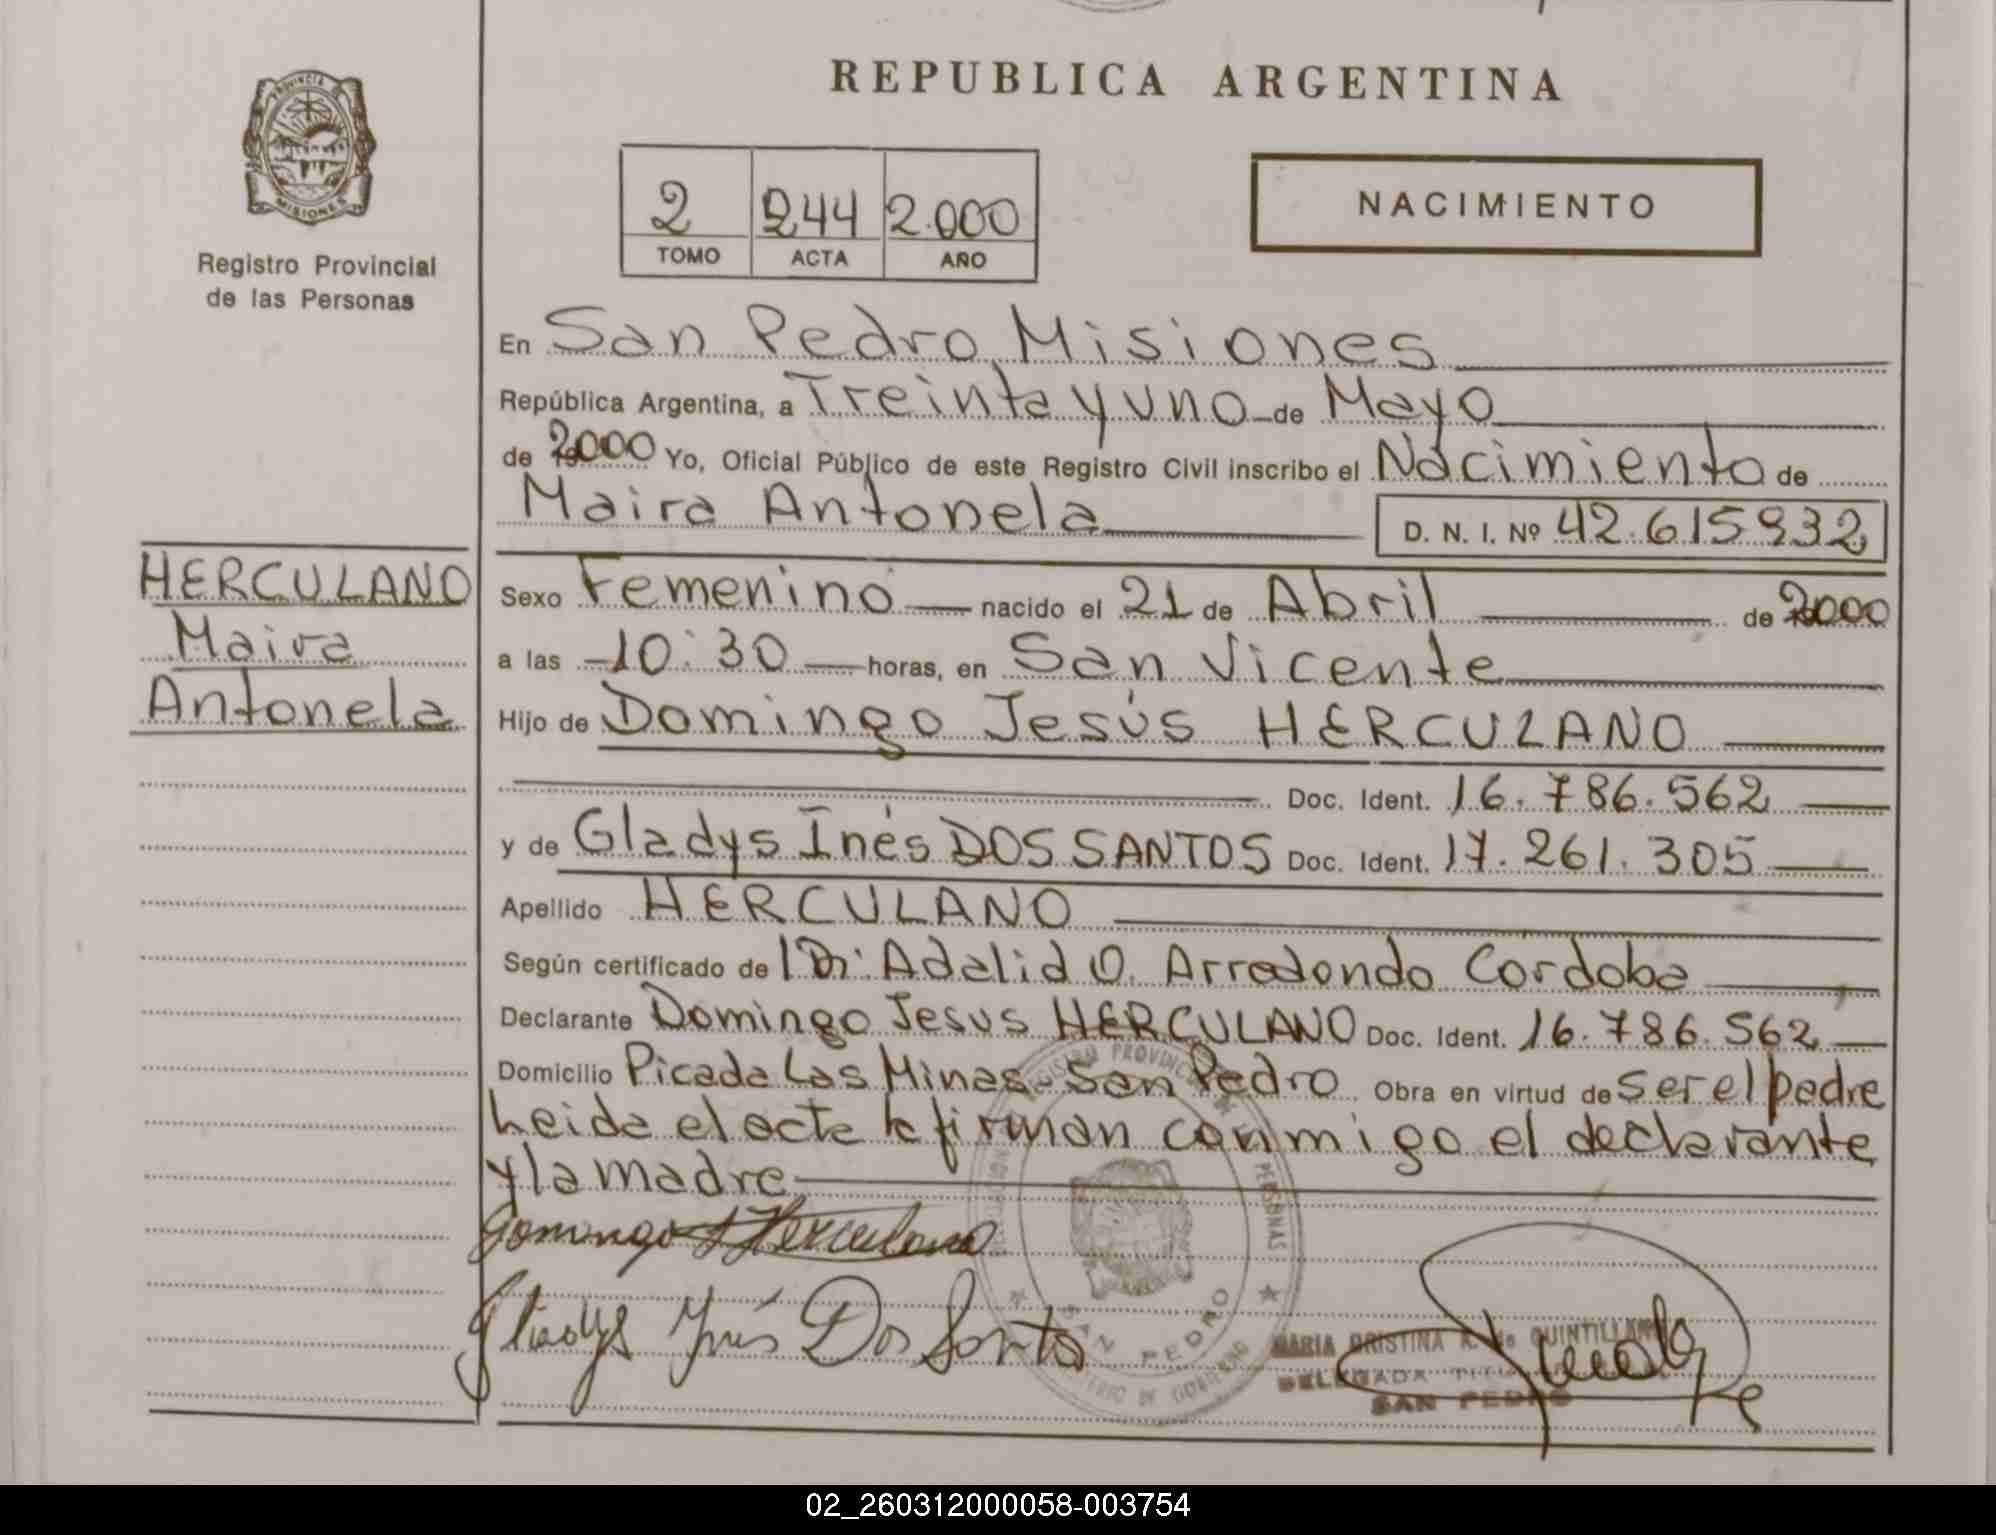 REPUBLICA ARGENTINA
PROVINCIA DE
MISIONES
Registro Provincial
de las Personas
2 244 2.000
TOMO ACTA AÑO
NACIMIENTO
En San Pedro Misiones
República Argentina, a Treinta y uno de Mayo
de 2000 Yo, Oficial Público de este Registro Civil inscribo el Nacimiento de
Maira Antonela
D. N. I. Nº 42.615932
HERCULANO
Maira
Antonela
Sexo Femenino nacido el 21 de Abril de 2000
a las 10:30 horas, en San Vicente
Hijo de Domingo Jesús HERCULANO
Doc. Ident. 16.786.562
y de Gladys Inés DOS SANTOS Doc. Ident. 17.261.305
Apellido HERCULANO
Según certificado de Dr. Adalid O. Arredondo Cordoba
Declarante Domingo Jesus HERCULANO Doc. Ident. 16.786.562
Domicilio Picada Las Minas - San Pedro Obra en virtud de ser el padre
Leida el acta la firman conmigo el declarante
y la madre
Domingo J Herculano
Gladys Inés Dos Santos
REGISTRO PROVINCIAL DE LAS PERSONAS
SAN PEDRO
MINISTERIO DE GOBIERNO
MARIA CRISTINA R. de QUINTILLAN
DELEGADA TITULAR
SAN PEDRO
02_260312000058-003754